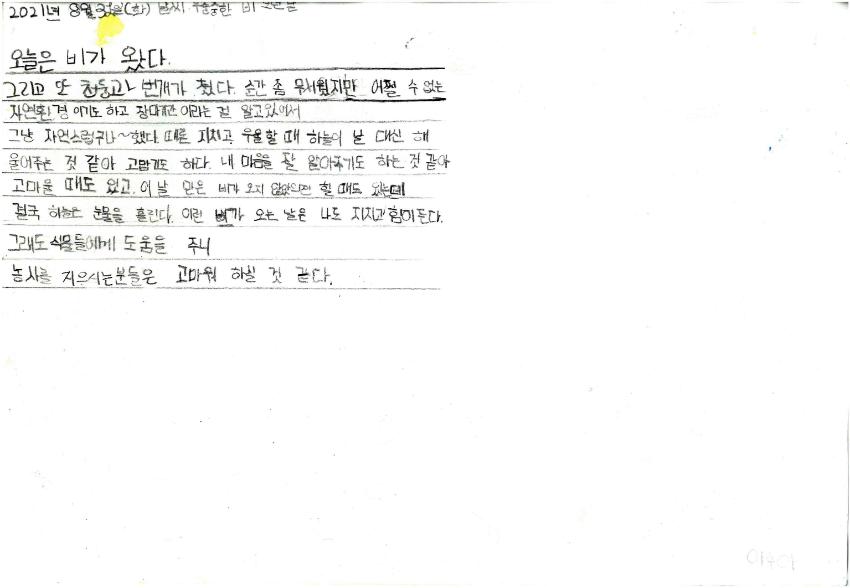 2021년 8월 31일(화) 날씨 우중충한 비 오는날
오늘은 비가 왔다.
그리고 또 천둥과 번개가 쳤다. 순간 좀 무서웠지만 어쩔 수 없는
자연환경 이기도 하고 장마기간 이라는 걸 알고있어서
그냥 자연스럽구나~했다. 때론 지치고, 우울할 때 하늘이 날 대신 해
울어주는 것 같아 고맙기도 하다. 내 마음을 잘 알아주기도 하는 것 같아
고마울 때도 있고, 이 날 만은 비가 오지 않았으면 할 때도 있는데
결국 하늘은 눈물을 흘린다. 이런 비가 오는 날은 나도 지치고 힘이 든다.
그래도 식물들에게 도움을 주니
농사를 지으시는분들은 고마워 하실 것 같다.